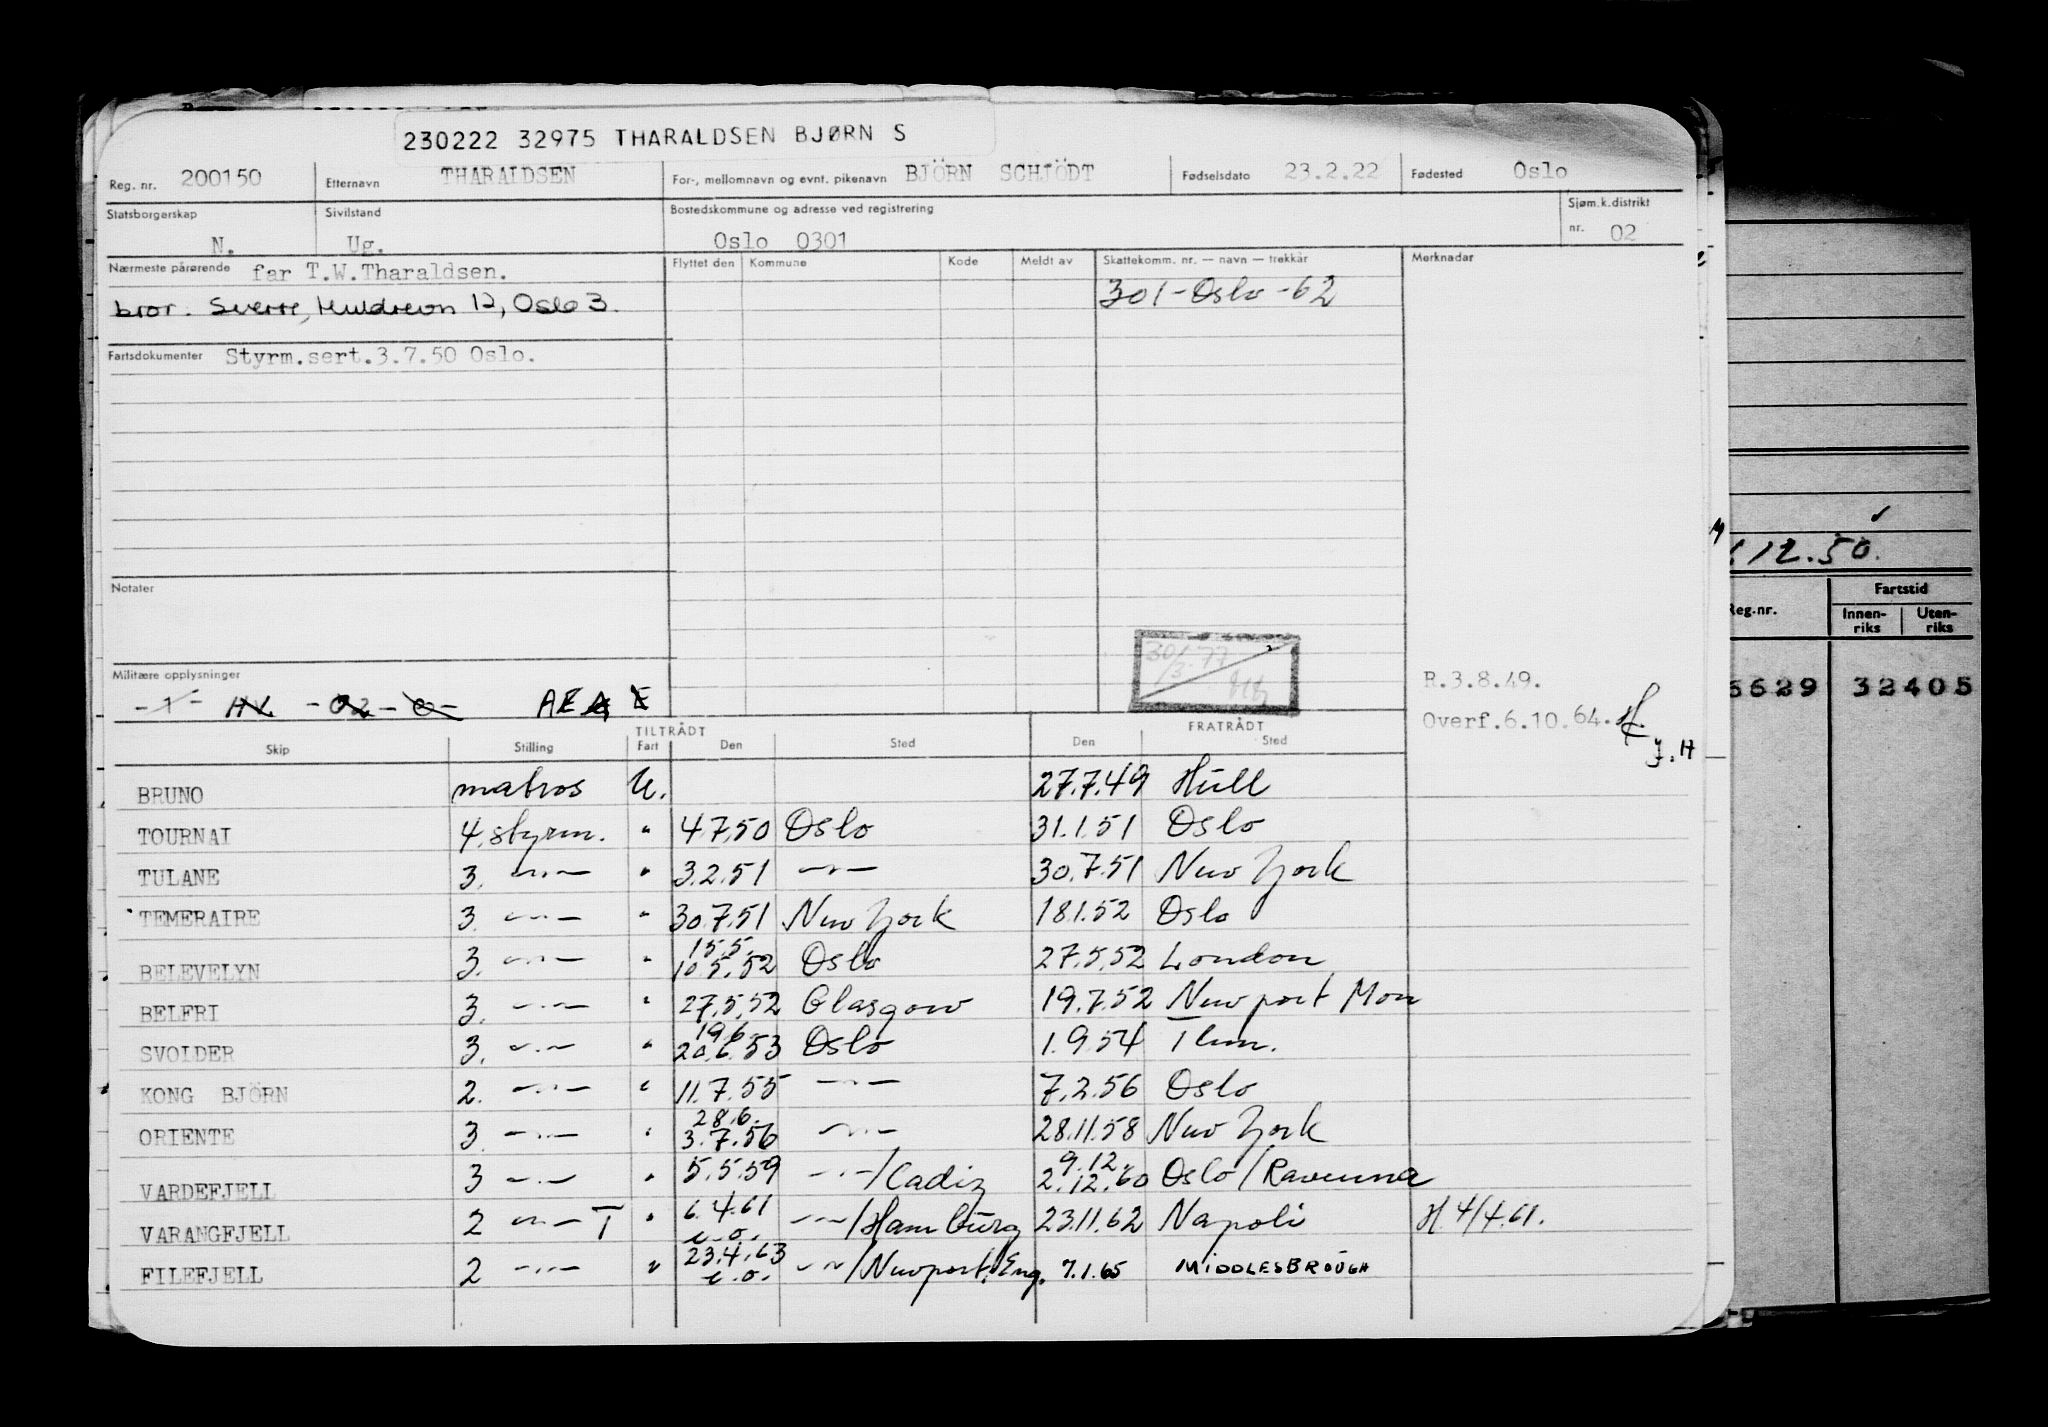 230222 32975 THARALDSEN BJØRN S
Reg. nr. 200150 Etternavn THARALDSEN For-, mellomnavn og evnt. pikenavn BJÖRN SCHJÖDT Fødselsdato 23.2.22 Fødested Oslo
Statsborgerskap N. Sivilstand Ug. Bostedskommune og adresse ved registrering Oslo 0301 Sjøm.k.distrikt nr. 02
Nærmeste pårørende far T.W.Tharaldsen. Flyttet den Kommune Kode Meldt av Skattekomm. nr. — navn — trekkår Merknader
301-Oslo-62
bror. Sverre, Huldrevn 12, Oslo 3.
Fartsdokumenter Styrm.sert.3.7.50 Oslo.
Notater
Militære opplysninger
R.3.8.49.
Overf.6.10.64.
J.H
TILTRÅDT FRATRÅDT
Skip Stilling Fart Den Sted Den Sted
BRUNO matros U. 27.7.49 Hull
TOURNAI 4. styrm. " 4.7.50 Oslo 31.1.51 Oslo
TULANE 3. —"— " 3.2.51 —"— 30.7.51 New York
TEMERAIRE 3. —"— " 30.7.51 New York 18.1.52 Oslo
BELEVELYN 3. —"— " 15.5. 10.5.52 Oslo 27.5.52 London
BELFRI 3. —"— " 27.5.52 Glasgow 19.7.52 Newport Mon
SVOLDER 3. —"— " 19.6. 20.6.53 Oslo 1.9.54
KONG BJÖRN 2. —"— " 11.7.55 —"— 7.2.56 Oslo
ORIENTE 3. —"— " 28.6. 3.7.56 —"— 28.11.58 New York
VARDEFJELL 3 —"— " 5.5.59 —"—/Cadiz 9.12. 2.12.60 Oslo/Ravenna
VARANGFJELL 2 —"— T " 6.4.61 e.o. —"—/Hamburg 23.11.62 Napoli H. 4/4.61.
FILEFJELL 2 —"— " 23.4.63 e.o. —"—/Newport, Eng. 7.1.65 MIDDLESBROUGH
12.50.
Reg.nr. Fartstid
Innen-riks Uten-riks
6629 32405